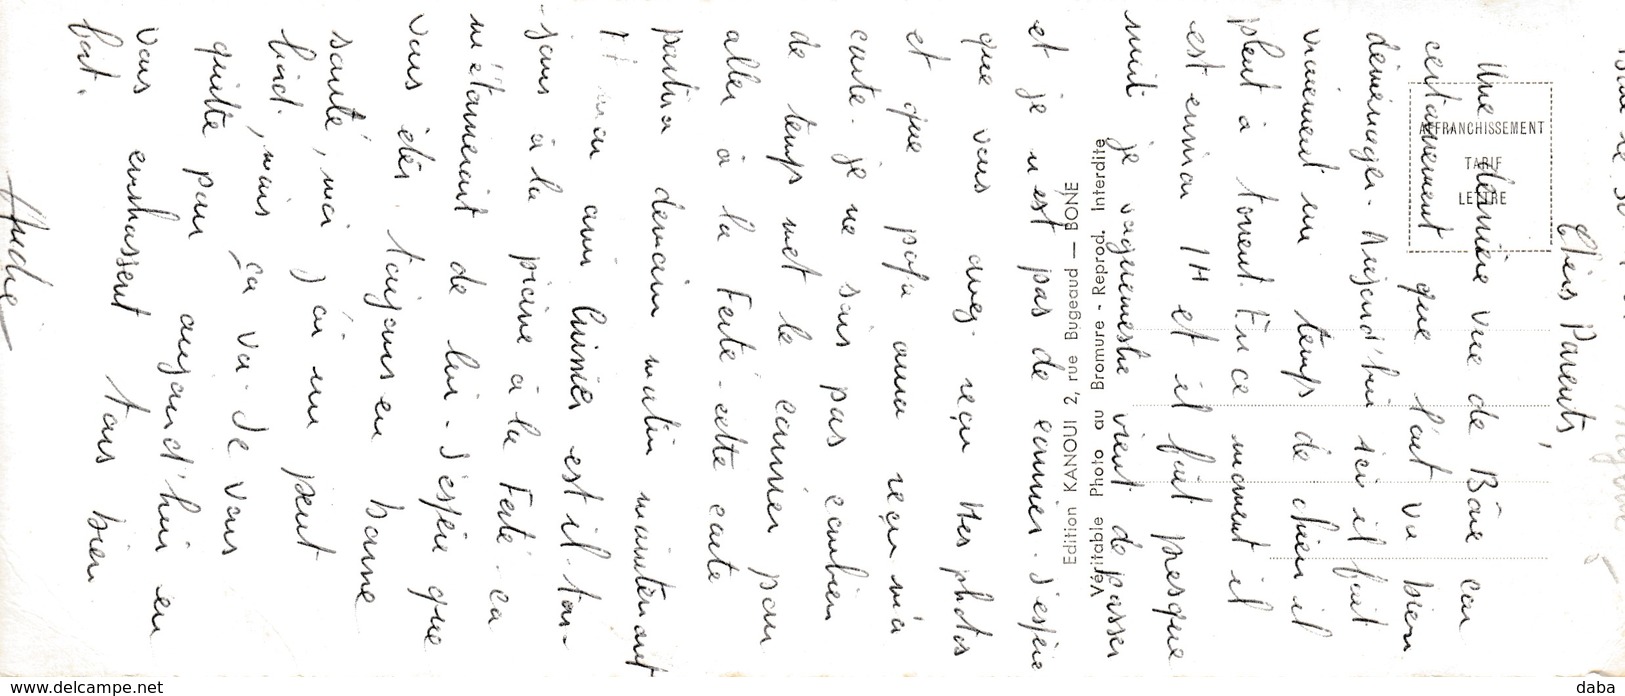 Chers Parents
Une dernière vue de Bône car
certainement que l'art va bien
déménager. Aujourd'hui ici il fait
vraiment un temps de chien il
pleut à torrent. En ce moment il
est environ 1H et il fait presque
nuit je vaguemestre vient de passer
et je n'est pas de courrier. J'espère
que vous avez reçu mes photos
et que papa aura reçu ma
carte. je ne sais pas combien
de temps met le courrier pour
aller à la Ferté. cette carte
partira demain matin maintenant
mon ami limier est il tou-
-jours à la piscine à la Ferté. ça
m'étonnerait de lui. J'espère que
vous êtes toujours en bonne
santé, moi j'ai un peut
froid, mais ça va. Je vous
quitte pour aujourd'hui en
vous embrassent tous bien
fort.
André
AFFRANCHISSEMENT
TARIF
LETTRE
Edition KANOUI 2, rue Bugeaud — BONE
Véritable Photo au Bromure - Reprod. Interdite
www.delcampe.net
daba